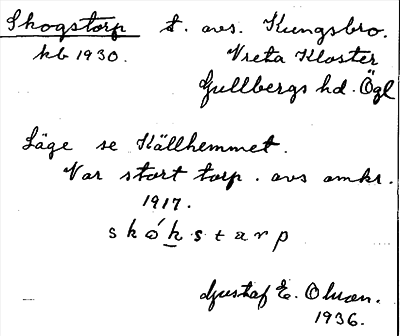 Skogstorp t. avs. Kungsbro.
kb 1930. Vreta Kloster
Gullbergs hd. Ögl
Läge se Källhemmet.
Var stort torp. avs omkr.
1917.
skókstarp
Gustaf E. Olson.
1936.